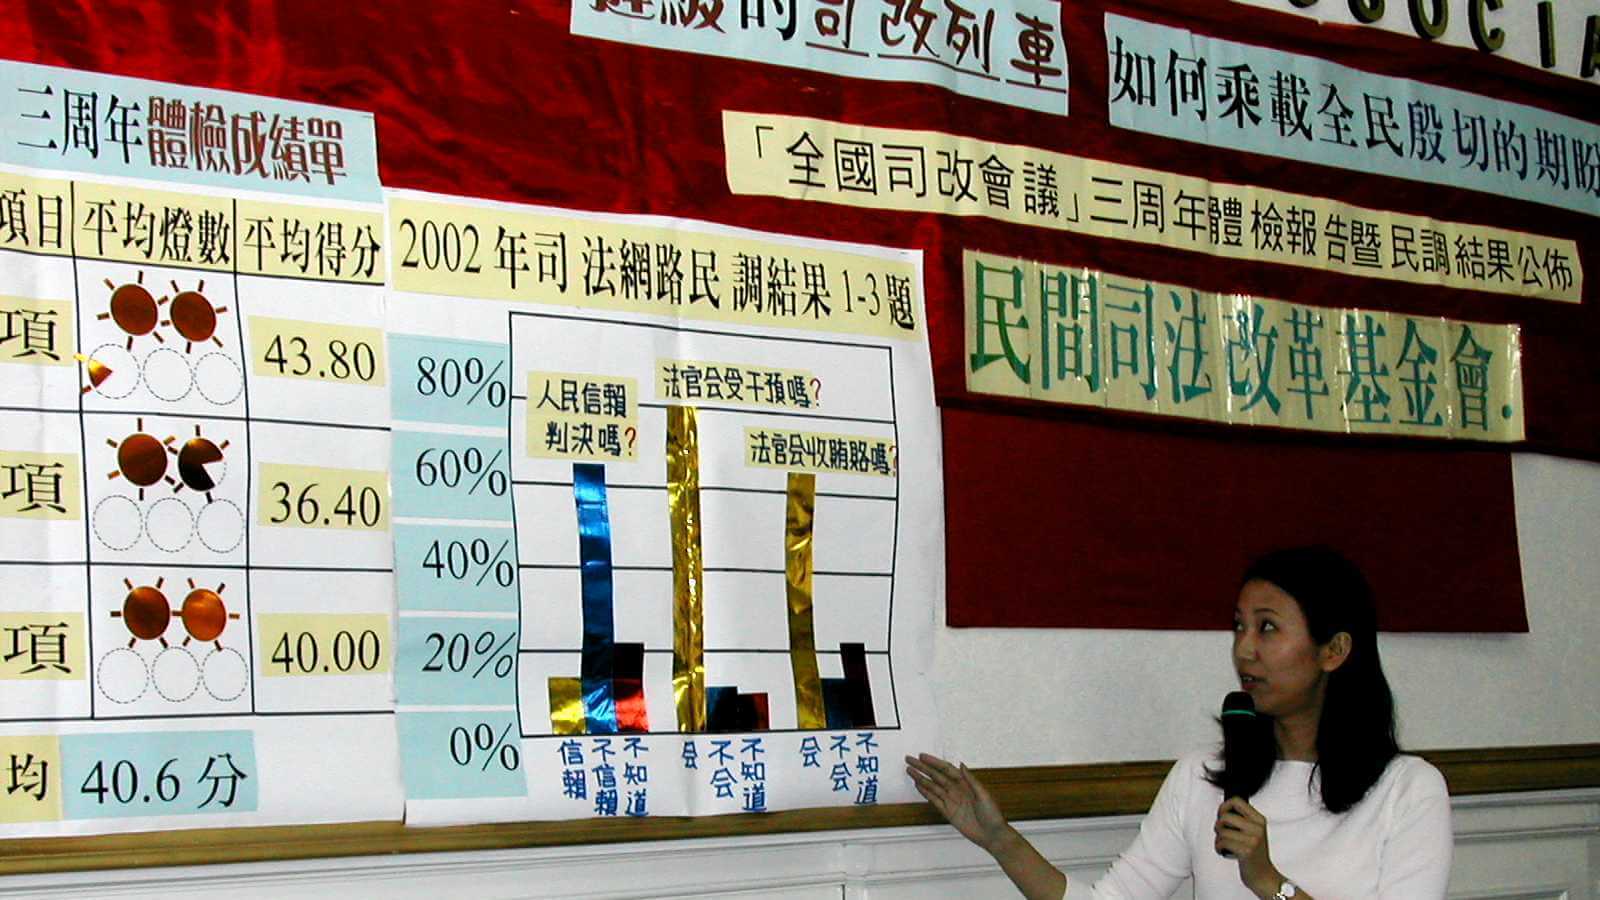 級的司改列車
如何乘載全民殷切的期盼
「全國司改會議」三周年體檢報告暨民調結果公佈
民間司法改革基金會
三周年體檢成績單
項目 平均燈數 平均得分
項 43.80
項 36.40
項 40.00
均 40.6分
2002年司法網路民調結果1-3題
80%
60%
40%
20%
0%
人民信賴
判決嗎?
法官会受干預嗎?
法官会收賄賂嗎?
信賴 不信賴 不知道
会 不会 不知道
会 不会 不知道